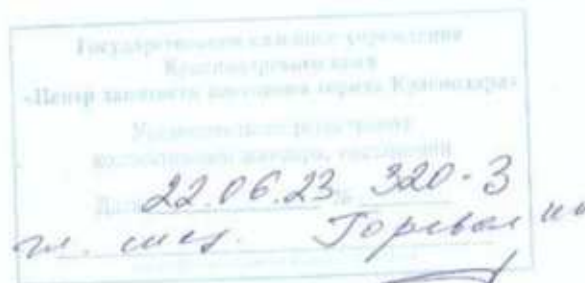 Государственное казенное учреждение
Краснодарского края
«Центр занятости населения города Краснодара»
Уведомительная регистрация
коллективного договора, соглашения
Дата 22.06.23 № 320-3
гл. спец.